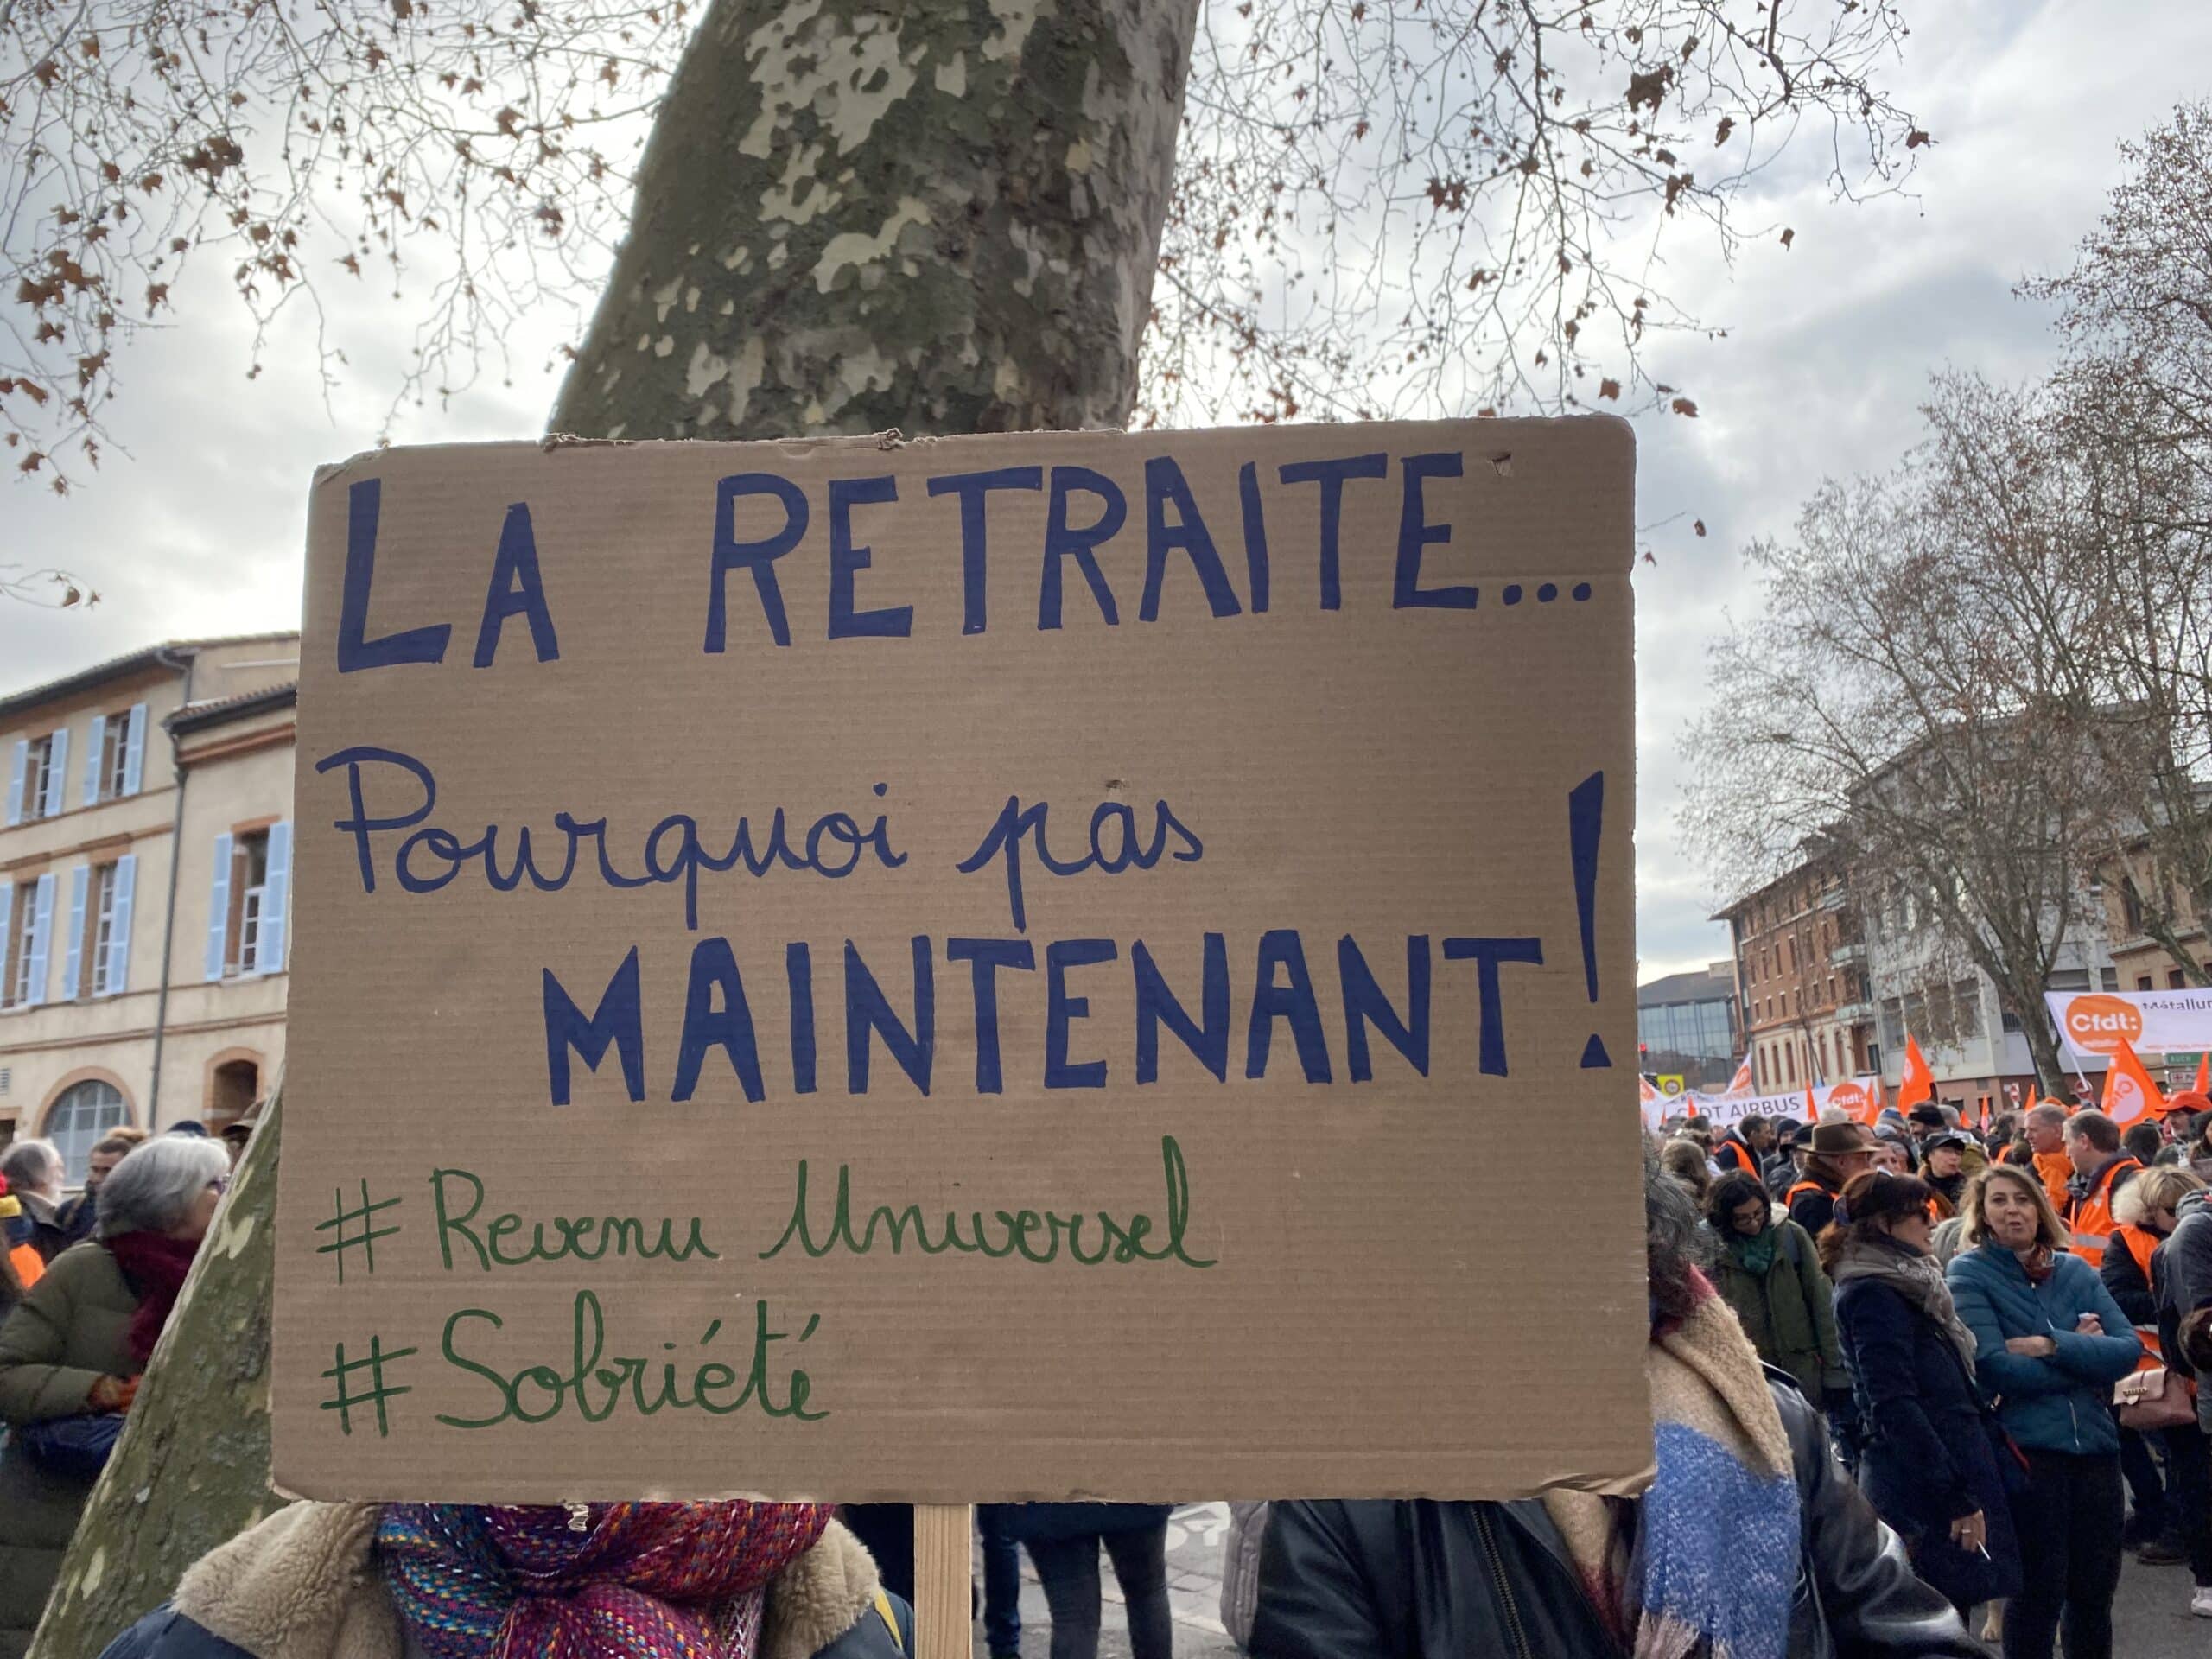 LA RETRAITE...
Pourquoi pas
MAINTENANT!
#Revenu Universel
#Sobriété
Cfdt:
AIRBUS
Cfdt: